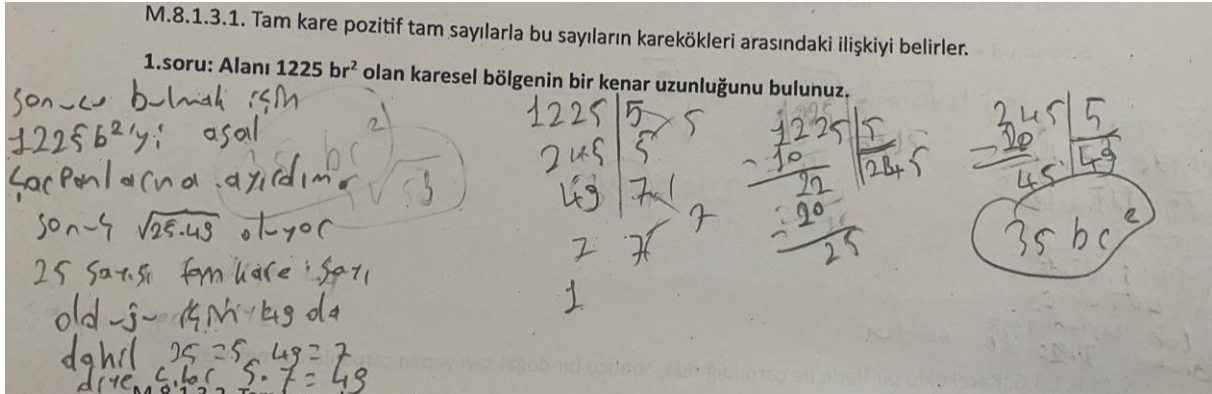 M.8.1.3.1. Tam kare pozitif tam sayılarla bu sayıların karekökleri arasındaki ilişkiyi belirler.
1.soru: Alanı 1225 br² olan karesel bölgenin bir kenar uzunluğunu bulunuz.
sonucu bulmak için
1225b²'yi asal
çarpanlarına ayırdım
sonuç √25.49 oluyor
25 sayısı tam kare sayı
olduğu için 49 da
dahil 25=5 49=7
diye çıkar 5.7=49
1225 | 5 5
245 | 5
49 | 7
7 7 7
1
1225 | 5
- 10 | 245
22
- 20
25
245 | 5
- 20 | 49
45
35 br²